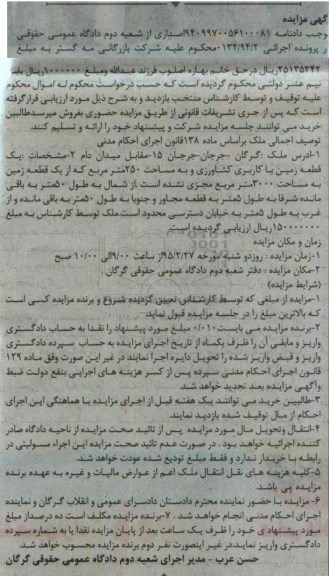 گهی مزایده
وجب دادنامه ۹۴۰۹۹۷۰۰۵۶۱۰۰۰۸۱ اصداری از شعبه دوم دادگاه عمومی حقوقی
و پرونده اجرائی ۰۱۳۴/۹۴/۲ محکوم علیه شرکت بازرگانی مه گستر به مبلغ
۲۵۱۳۵۳۴۲ ریال در حق خانم بهاره اصلوب فرزند عبدالله ومبلغ ۱۰۰۰۰۰۰ ریال بابت
نیم عشر دولتی محکوم گردیده است که حسب درخواست محکوم له اموال محکوم
علیه توقیف و توسط کارشناس منتخب بازدید و به شرح ذیل مورد ارزیابی قرار گرفته
است که پس از جری تشریفات قانونی از طریق مزایده حضوری بفروش میرسد طالبین
خرید می توانند جلسه مزایده شرکت و پیشنهاد خود را ارائه و تسلیم کنند.
توصیف اجمالی ملک براساس ماده ۱۳۸ قانون اجرای احکام مدنی
۱-ادرس ملک :گرگان -جرجان-جرجان ۱۵-مقابل میدان دام ۲-مشخصات :یک
قطعه زمین با کاربری کشاورزی و به مساحت ۲۵۰ متر مربع که از یک قطعه زمین
به مساحت ۳۰۰۰ متر مربع مجزی نشده است .از شمال به طول ۵۰ متر به باقی
مانده شرقا به طول ۵ متر به قطعه مجاور و جنوبا به طول ۵۰ متر به باقی مانده و از
غرب به طول ۵ متر به خیابان دسترسی محدود است.ملک توسط کارشناس به مبلغ
۱۵۰۰۰۰۰۰۰ ریال ارزیابی گردیده است.
زمان و مکان مزایده
۱-زمان مزایده : روزدو شنبه مورخه ۹۵/۲/۲۷ از ساعت ۹/۰۰ الی ۱۰/۰۰ صبح
۲-مکان مزایده : دفتر شعبه دوم دادگاه عمومی حقوقی گرگان .
(شرایط مزایده)
۱-مزایده از مبلغی که توسط کارشناس تعیین گردیده شروع و برنده مزایده کسی است
که بالاترین مبلغ را در جلسه مزایده قبول نماید.
۲-برنده مزایده می بایست ۰/۰۱۰ مبلغ مورد پیشنهاد را نقدا به حساب دادگستری
واریز و مابقی آن را ظرف یکماه از تاریخ اجرای مزایده به حساب سپرده دادگستری
واریز و قبض واریز شده را تحویل دایره اجرا نمایند در غیر این صورت وفق ماده ۱۲۹
قانون اجرای احکام مدنی سپرده پس از کسر هزینه های اجرایی بنفع دولت ضبط
و آگهی مزایده بعد تجدید خواهد شد.
۳-طالبین خرید می توانند یک هفته قبل از اجرای مزایده با هماهنگی این اجرای
احکام از مال توقیف شده بازدید نمایند.
۴-انتقال وتحویل مال مورد مزایده پس از تائید صحت مزایده از ناحیه دادگاه صادر
کننده اجرائیه خواهد بود . در صورت عدم تائید صحت مزایده این اجراء مسولیتی در
رابطه با خریدار ندارد و فقط مبلغ تودیع شده عودت خواهد شد.
۵-کلیه هزینه های نقل انتقال ملک اعم از عوارض مالیات و غیره به عهده برنده
مزایده می باشد.
۶-مزایده با حضور نماینده محترم دادستان دادسرای عمومی و انقلاب گرگان و نماینده
اجرای احکام مدنی انجام خواهد شد. ۷-برنده مزایده مکلف است ده درصداز مبلغ
مورد پیشنهادی خود را ظرف یک ساعت بعد از پایان مزایده نقدا یا به شماره سپرده
دادگستری واریز نماید.در غیر اینصورت نفر دوم برنده مزایده محسوب خواهد شد.
حسن عرب - مدیر اجرای شعبه دوم دادگاه عمومی حقوقی گرگان